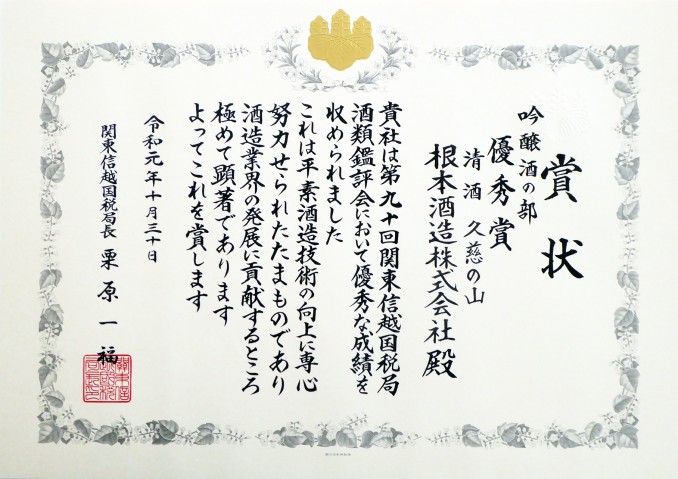 賞状
吟醸酒の部
優秀賞
清酒 久慈の山
根本酒造株式会社殿
貴社は第九十回関東信越国税局
酒類鑑評会において優秀な成績を
収められました
これは平素酒造技術の向上に専心
努力せられたたまものであり
酒造業界の発展に貢献するところ
極めて顕著であります
よってこれを賞します
令和元年十月三十日
関東信越国税局長 栗原一福